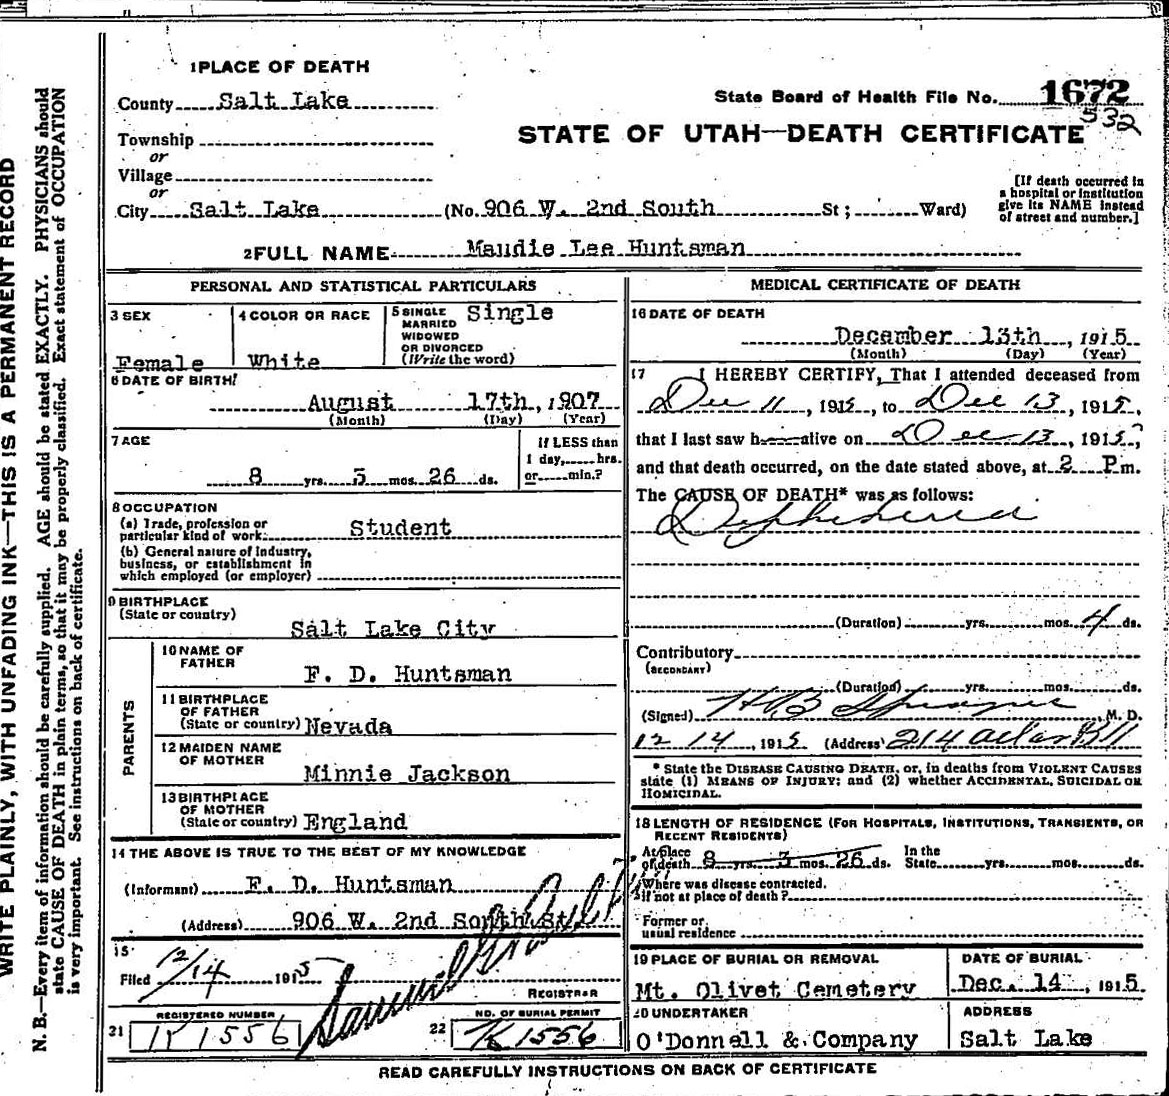 WRITE PLAINLY, WITH UNFADING INK—THIS IS A PERMANENT RECORD
N. B.—Every item of information should be carefully supplied. AGE should be stated EXACTLY. PHYSICIANS should
state CAUSE OF DEATH in plain terms, so that it may be properly classified. Exact statement of OCCUPATION
is very important. See instructions on back of certificate.
1 PLACE OF DEATH
County Salt Lake
State Board of Health File No. 1672
532
Township
STATE OF UTAH—DEATH CERTIFICATE
or
Village
or
City Salt Lake (No. 906 W. 2nd South St; Ward)
[If death occurred in
a hospital or institution
give its NAME instead
of street and number.]
2 FULL NAME Maudie Lee Huntsman
PERSONAL AND STATISTICAL PARTICULARS
3 SEX
Female
4 COLOR OR RACE
White
5 SINGLE
MARRIED
WIDOWED
OR DIVORCED
(Write the word)
Single
6 DATE OF BIRTH
August 17th, 1907
(Month) (Day) (Year)
7 AGE
8 yrs. 3 mos. 26 ds.
If LESS than
1 day, hrs.
or min.?
8 OCCUPATION
(a) Trade, profession or
particular kind of work: Student
(b) General nature of industry,
business, or establishment in
which employed (or employer)
9 BIRTHPLACE
(State or country)
Salt Lake City
PARENTS
10 NAME OF
FATHER
F. D. Huntsman
11 BIRTHPLACE
OF FATHER
(State or country) Nevada
12 MAIDEN NAME
OF MOTHER
Minnie Jackson
13 BIRTHPLACE
OF MOTHER
(State or country) England
14 THE ABOVE IS TRUE TO THE BEST OF MY KNOWLEDGE
(Informant) F. D. Huntsman
(Address) 906 W. 2nd South St
15
Filed 12/14 1915
REGISTRAR
21 REGISTERED NUMBER
K 1556
22 NO. OF BURIAL PERMIT
K 1556
MEDICAL CERTIFICATE OF DEATH
16 DATE OF DEATH
December 13th, 1915
(Month) (Day) (Year)
17 I HEREBY CERTIFY, That I attended deceased from
Dec 11, 1915, to Dec 13, 1915,
that I last saw h alive on Dec 13, 1915,
and that death occurred, on the date stated above, at 2 P m.
The CAUSE OF DEATH* was as follows:
Diphtheria
(Duration) yrs. mos. 4 ds.
Contributory
(SECONDARY)
(Duration) yrs. mos. ds.
(Signed) H B Sprague, M. D.
12 14, 1915 (Address) 214 Atlas Bll
* State the DISEASE CAUSING DEATH, or, in deaths from VIOLENT CAUSES
state (1) MEANS OF INJURY; and (2) whether ACCIDENTAL, SUICIDAL OR
HOMICIDAL.
18 LENGTH OF RESIDENCE (FOR HOSPITALS, INSTITUTIONS, TRANSIENTS, OR
RECENT RESIDENTS)
At place
of death 8 yrs. 3 mos. 26 ds.
In the
State yrs. mos. ds.
Where was disease contracted,
if not at place of death?
Former or
usual residence
19 PLACE OF BURIAL OR REMOVAL
Mt. Olivet Cemetery
DATE OF BURIAL
Dec. 14, 1915
20 UNDERTAKER
O'Donnell & Company
ADDRESS
Salt Lake
READ CAREFULLY INSTRUCTIONS ON BACK OF CERTIFICATE